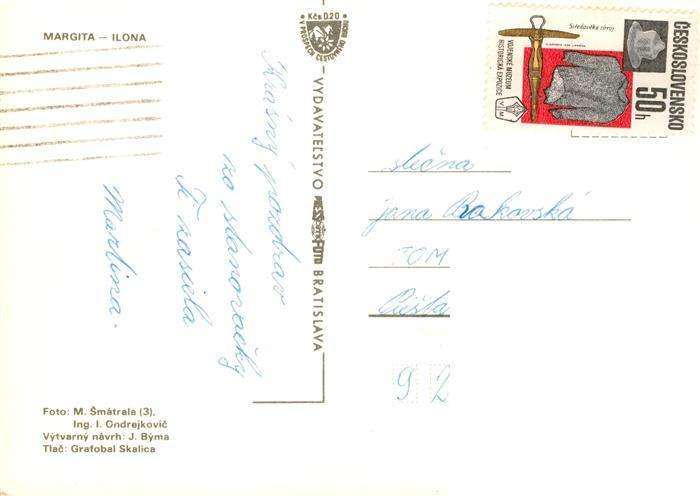 MARGITA — ILONA
Kčs 0,20
V PROSPECH CESTOVNÉHO RUCHU
Krásný pozdrav
zo stanovačky
Ti zasiela
Martina.
VYDAVATEĽSTVO PRESSFOTO BRATISLAVA
Středověká zbroj
VOJENSKÉ MUZEUM
HISTORICKÁ EXPOZICE
V M
ČESKOSLOVENSKO
50 h
slečna
Jana Rakovská
92
Foto: M. Šmátrala (3),
Ing. I. Ondrejkovič
Výtvarný návrh: J. Býma
Tlač: Grafobal Skalica